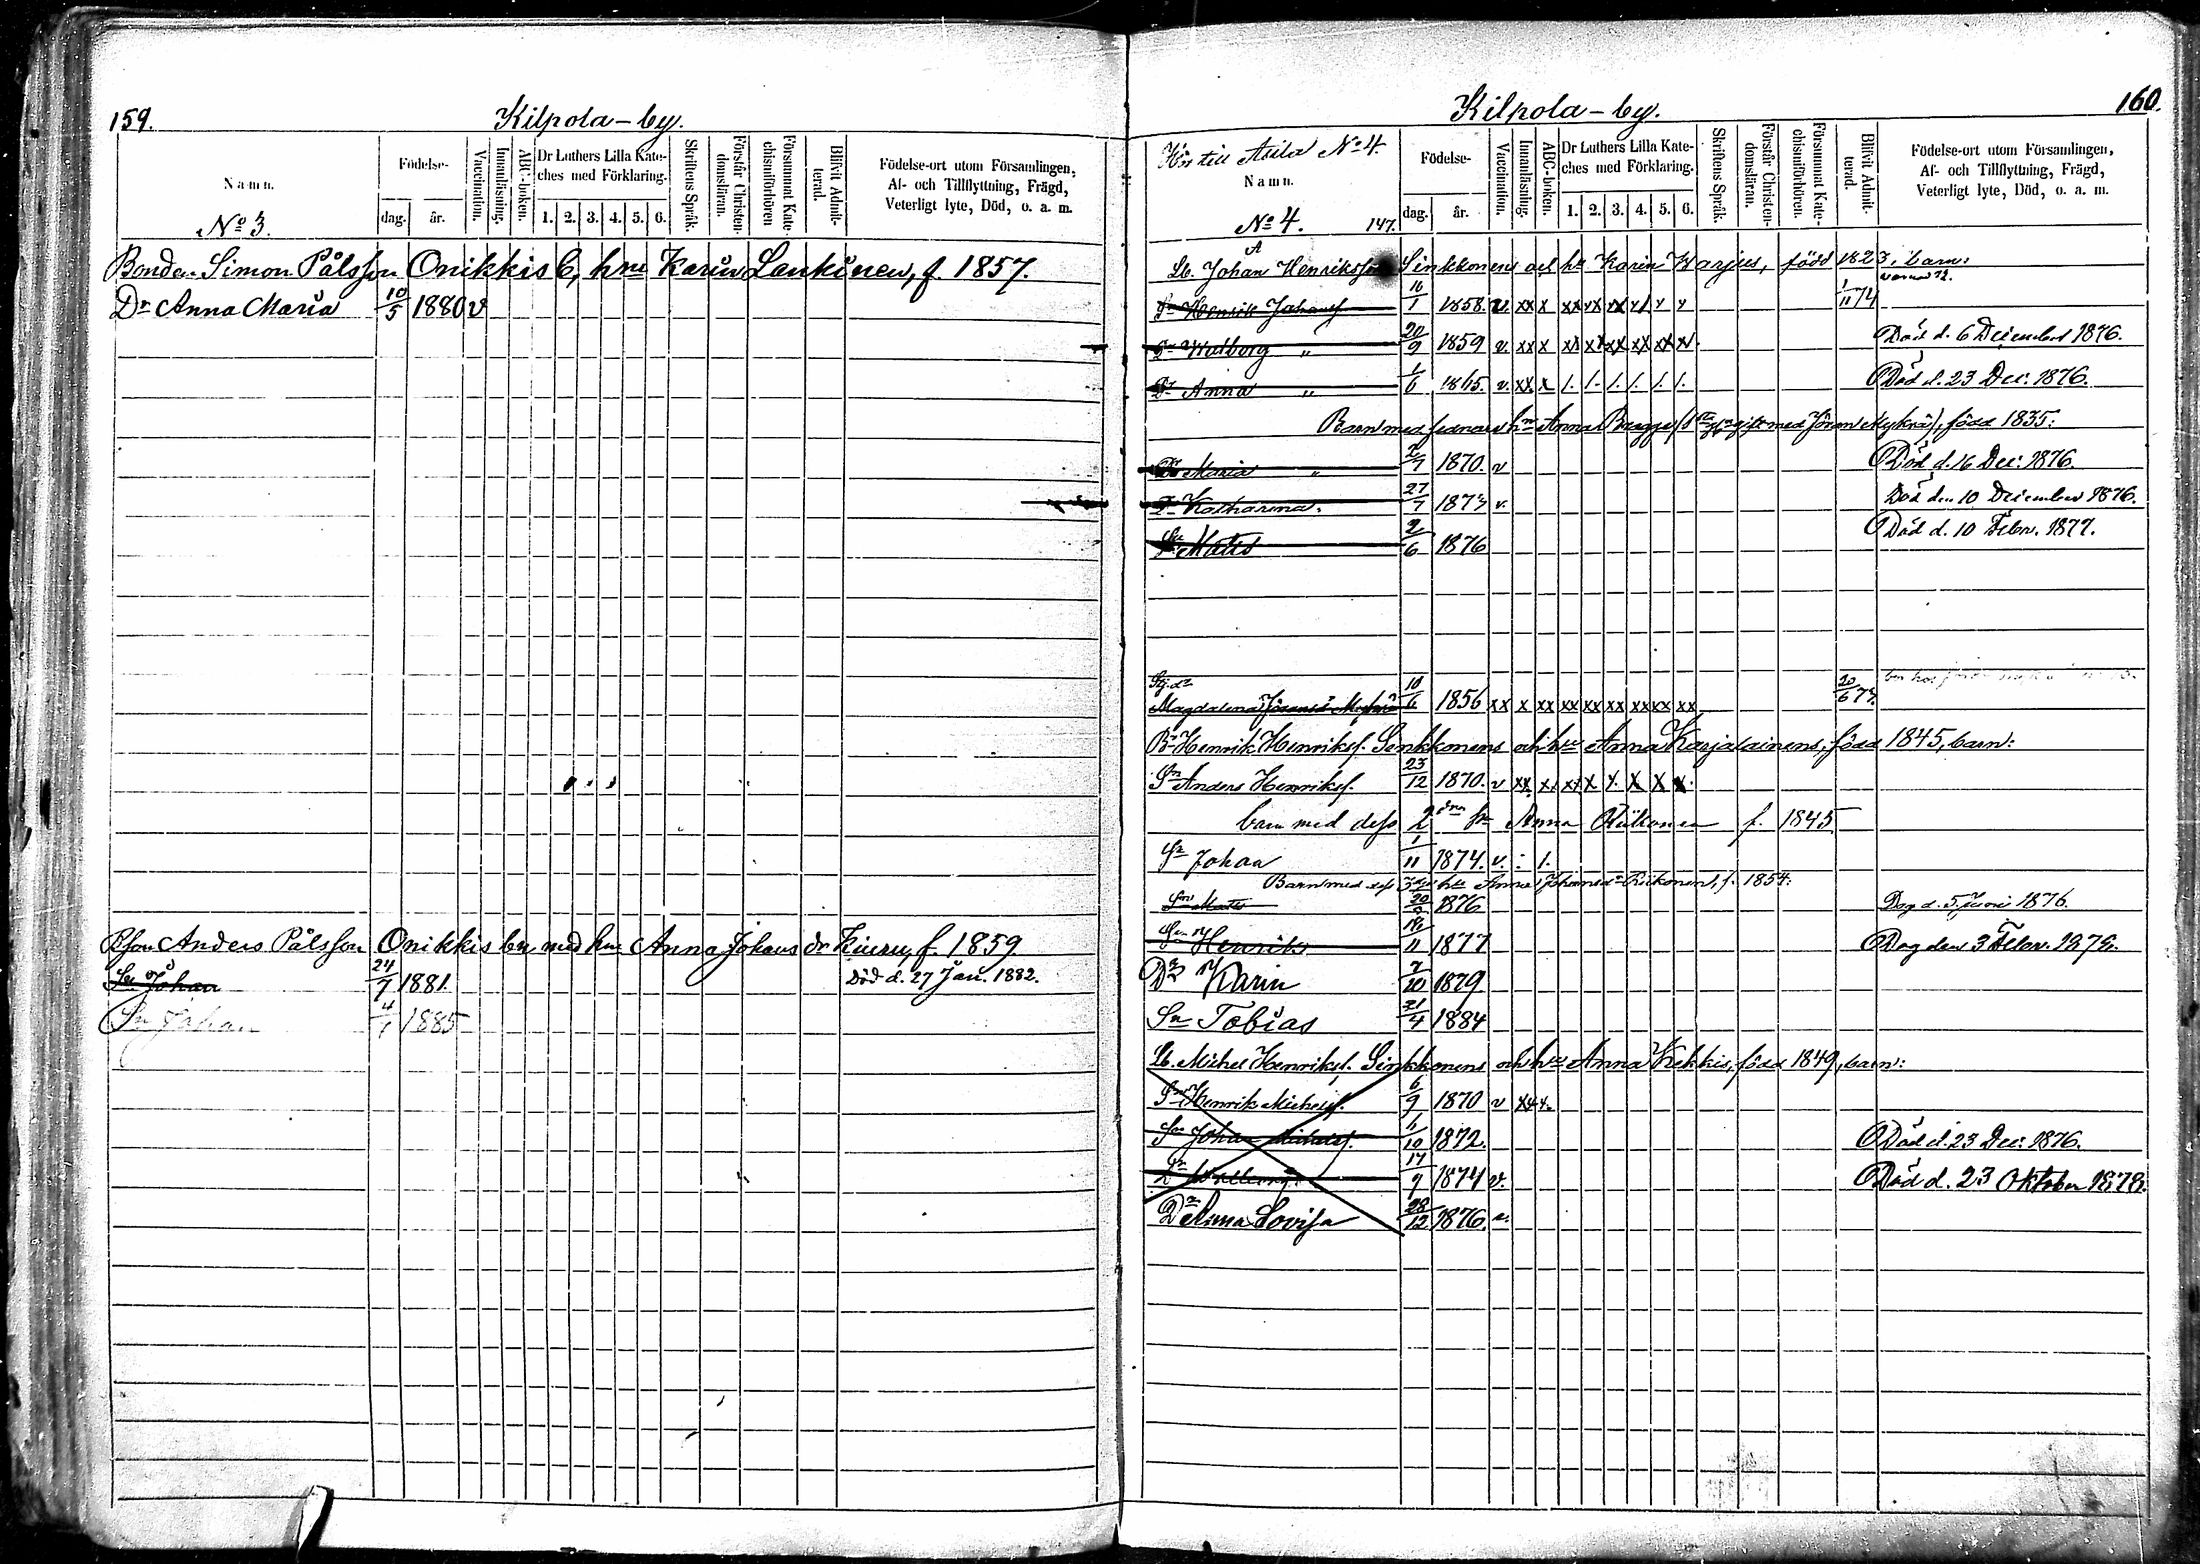 159.
Kilpola-by.
Namn.
No 3.
Födelse-
dag. år.
Vaccination.
Innanläsning.
ABC-boken.
Dr Luthers Lilla Kate-
ches med Förklaring.
1. 2. 3. 4. 5. 6.
Skriftens Språk.
Förstår Christen-
domsläran.
Försummat Kate-
chismiförhören
Blifvit Admit-
terad.
Födelse-ort utom Församlingen,
Af- och Tillflyttning, Frägd,
Veterligt lyte, Död, o. a. m.
Bonden Simon Pålsson Onikkis b, hnu Karin Lankinen, f. 1857.
Dr Anna Maria 10/5 1880 v
Anders Pålsson Onikkis bn med hnu Anna Johans dr Kiuru, f. 1859.
Sn Johan 24/7 1881. Död d. 27 Jan. 1882.
Sn Johan 4/1 1885
160.
Kilpola-by.
Hör till Asila No 4.
Namn.
No 4. 147.
Födelse-
dag. år.
Vaccination.
Innanläsning.
ABC-boken.
Dr Luthers Lilla Kate-
ches med Förklaring.
1. 2. 3. 4. 5. 6.
Skriftens Språk.
Förstår Christen-
domsläran.
Försummat Kate-
chismiförhören.
Blifvit Admit-
terad.
Födelse-ort utom Församlingen,
Af- och Tillflyttning, Frägd,
Veterligt lyte, Död, o. a. m.
Lb. Johan Henriksson Sinkkonens och hu Karin Warjus, född 1823, barn:
Sn Henrik Johansf 16/1 1858. v. xx x xx xx xx x x x 1/11 74
Dr Walborg " 20/9 1859 v. xx x xx xx xx xx xx xx Död d. 6 December 1876.
Dr Anna " 1/6 1865. v. xx x 1. 1. 1. 1. 1. 1. Död d. 23 Dec: 1876.
Barn med sednare hu Anna gift med Jöran Mykrä), född 1835:
Dr Maria " 2/7 1870. v Död d. 16 Dec: 1876.
Dr Katharina. 27/7 1873 v. Död den 10 December 1876.
Sn Mats 2/6 1876 Död d. 10 Febr. 1877.
Stj. dr
Magdalena 10/6 1856 xx x xx xx xx xx xx xx xx 20/6 73.
Br Henrik Henriksf. Sinkkonens och hu Anna Karjalainens, född 1845, barn:
Sn Anders Henriksf. 23/12 1870. v xx x xx x x. x x x.
barn med dess 2dra hu Anna f. 1845
Sn Johan 1/11 1874. v. : 1.
Barn med dess 3dje hu Anna Johansdr Riikonens, f. 1854:
Sn Mats 1876 Dog d. 5 Juni 1876.
Sn Henrik 1877 Dog den 3 Febr. 1879.
Dr Karin 7/10 1879
Sn Tobias 21/4 1884
Lb. Michel Henriksf. Sinkkonens och hu Anna Kekkis, född 1849, barn:
Sn Henrik Michelsf. 6/9 1870 v xx x.
Sn Johan Michelsf. 11/10 1872. Död d. 23 Dec: 1876.
Dr 17/9 1874 v. Död d. 23 Oktober 1878.
Dr Anna Lovisa 28/12 1876. v.